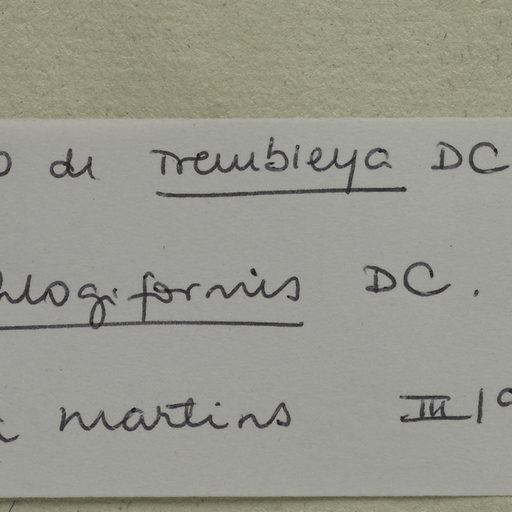 o de Trembleya DC
hlogiformis DC.
a martins III/19